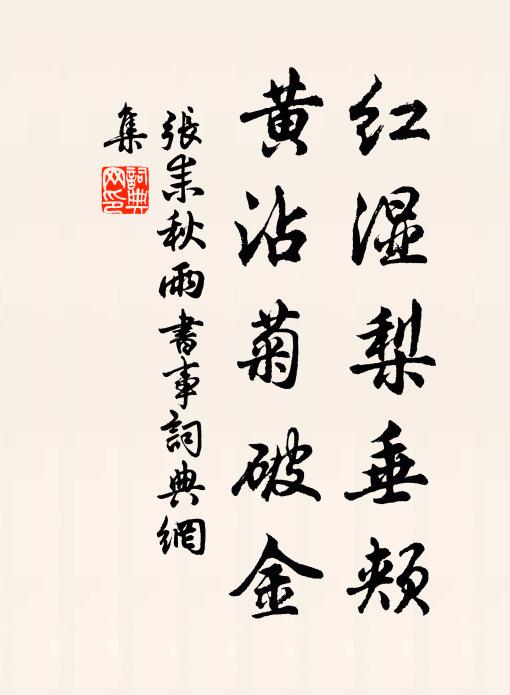 红湿梨垂颊
黄沾菊破金
張耒秋雨書事詞典網
集
詞典
网印